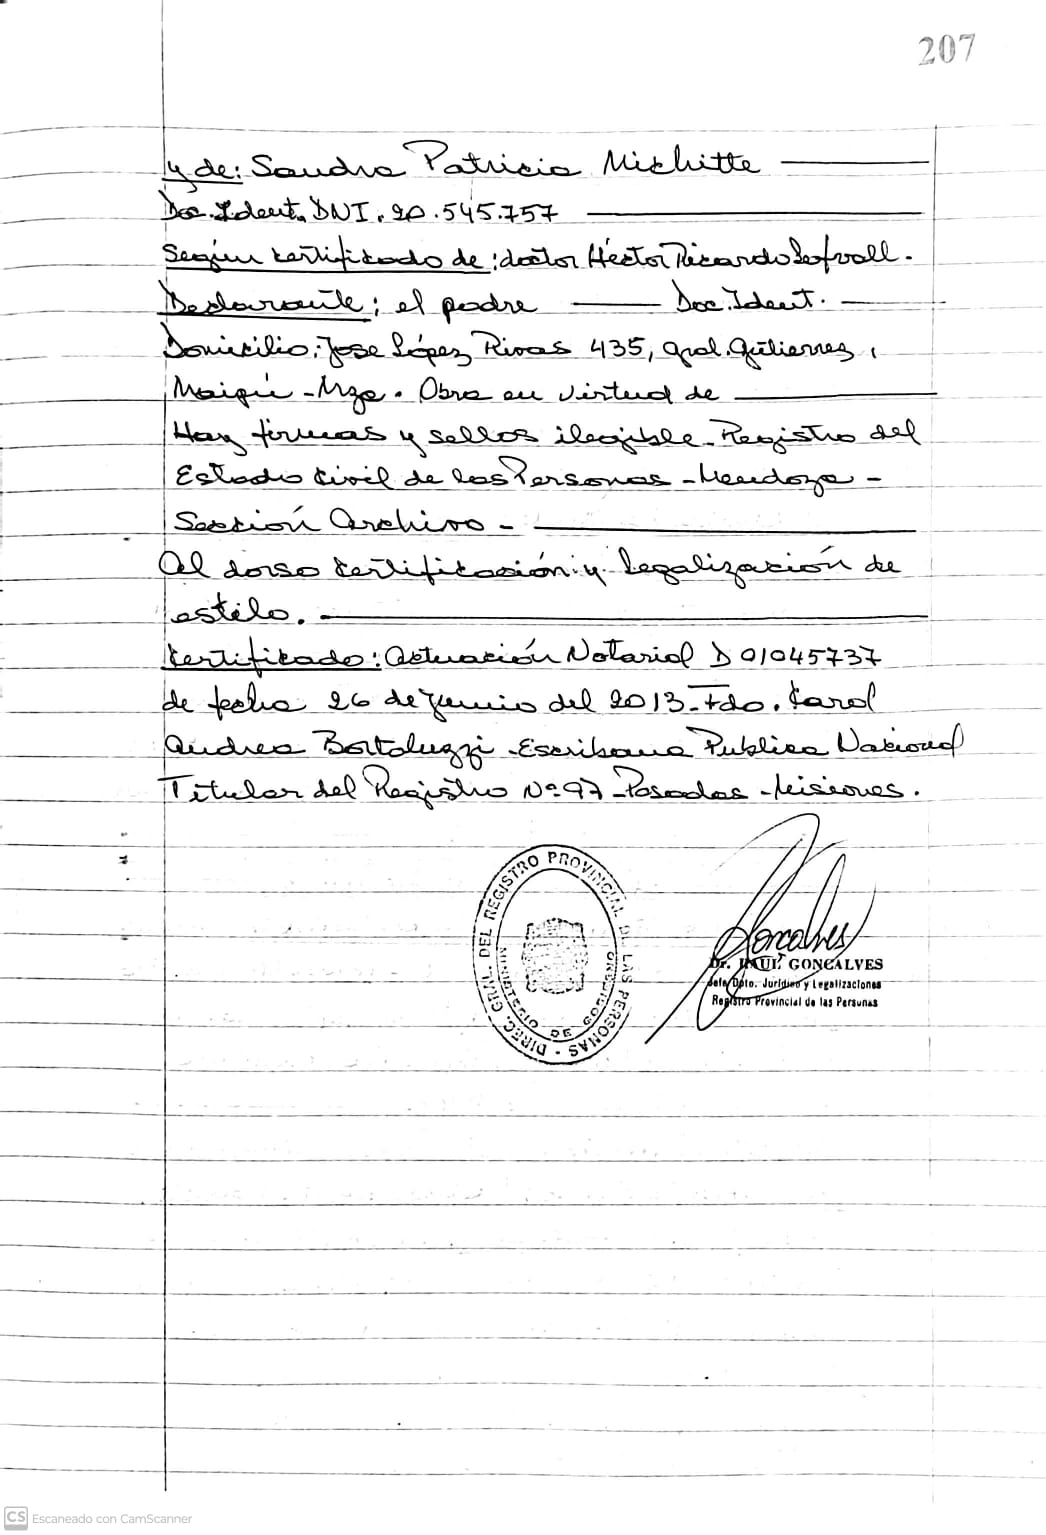 207
y de: Sandra Patricia Michitte
Doc. Ident. DNI. 20.545.757
Según certificado de: doctor Héctor Ricardo
Declarante: el padre Doc. Ident.
Domicilio: Jose López Rivas 435, gral. Gutierrez,
Maipú - Mza. Obra en virtud de
Hay firmas y sellos ilegible - Registro del
Estado Civil de las Personas - Mendoza -
Sección Archivo -
Al dorso certificación y legalización de
estilo.
Certificado: Actuación Notarial D 01045737
de fecha 26 de Junio del 2013 - Fdo. Karol
Andrea Bortoluzzi - Escribana Publica Nacional
Titular del Registro Nº 97 - Posadas - Misiones.
DIREC. GRAL. DEL REGISTRO PROVINCIAL DE LAS PERSONAS -
MINISTERIO DE GOBIERNO
Goncalves
Dr. RAUL GONCALVES
Jefe Dpto. Jurídico y Legalizaciones
Registro Provincial de las Personas
CS Escaneado con CamScanner